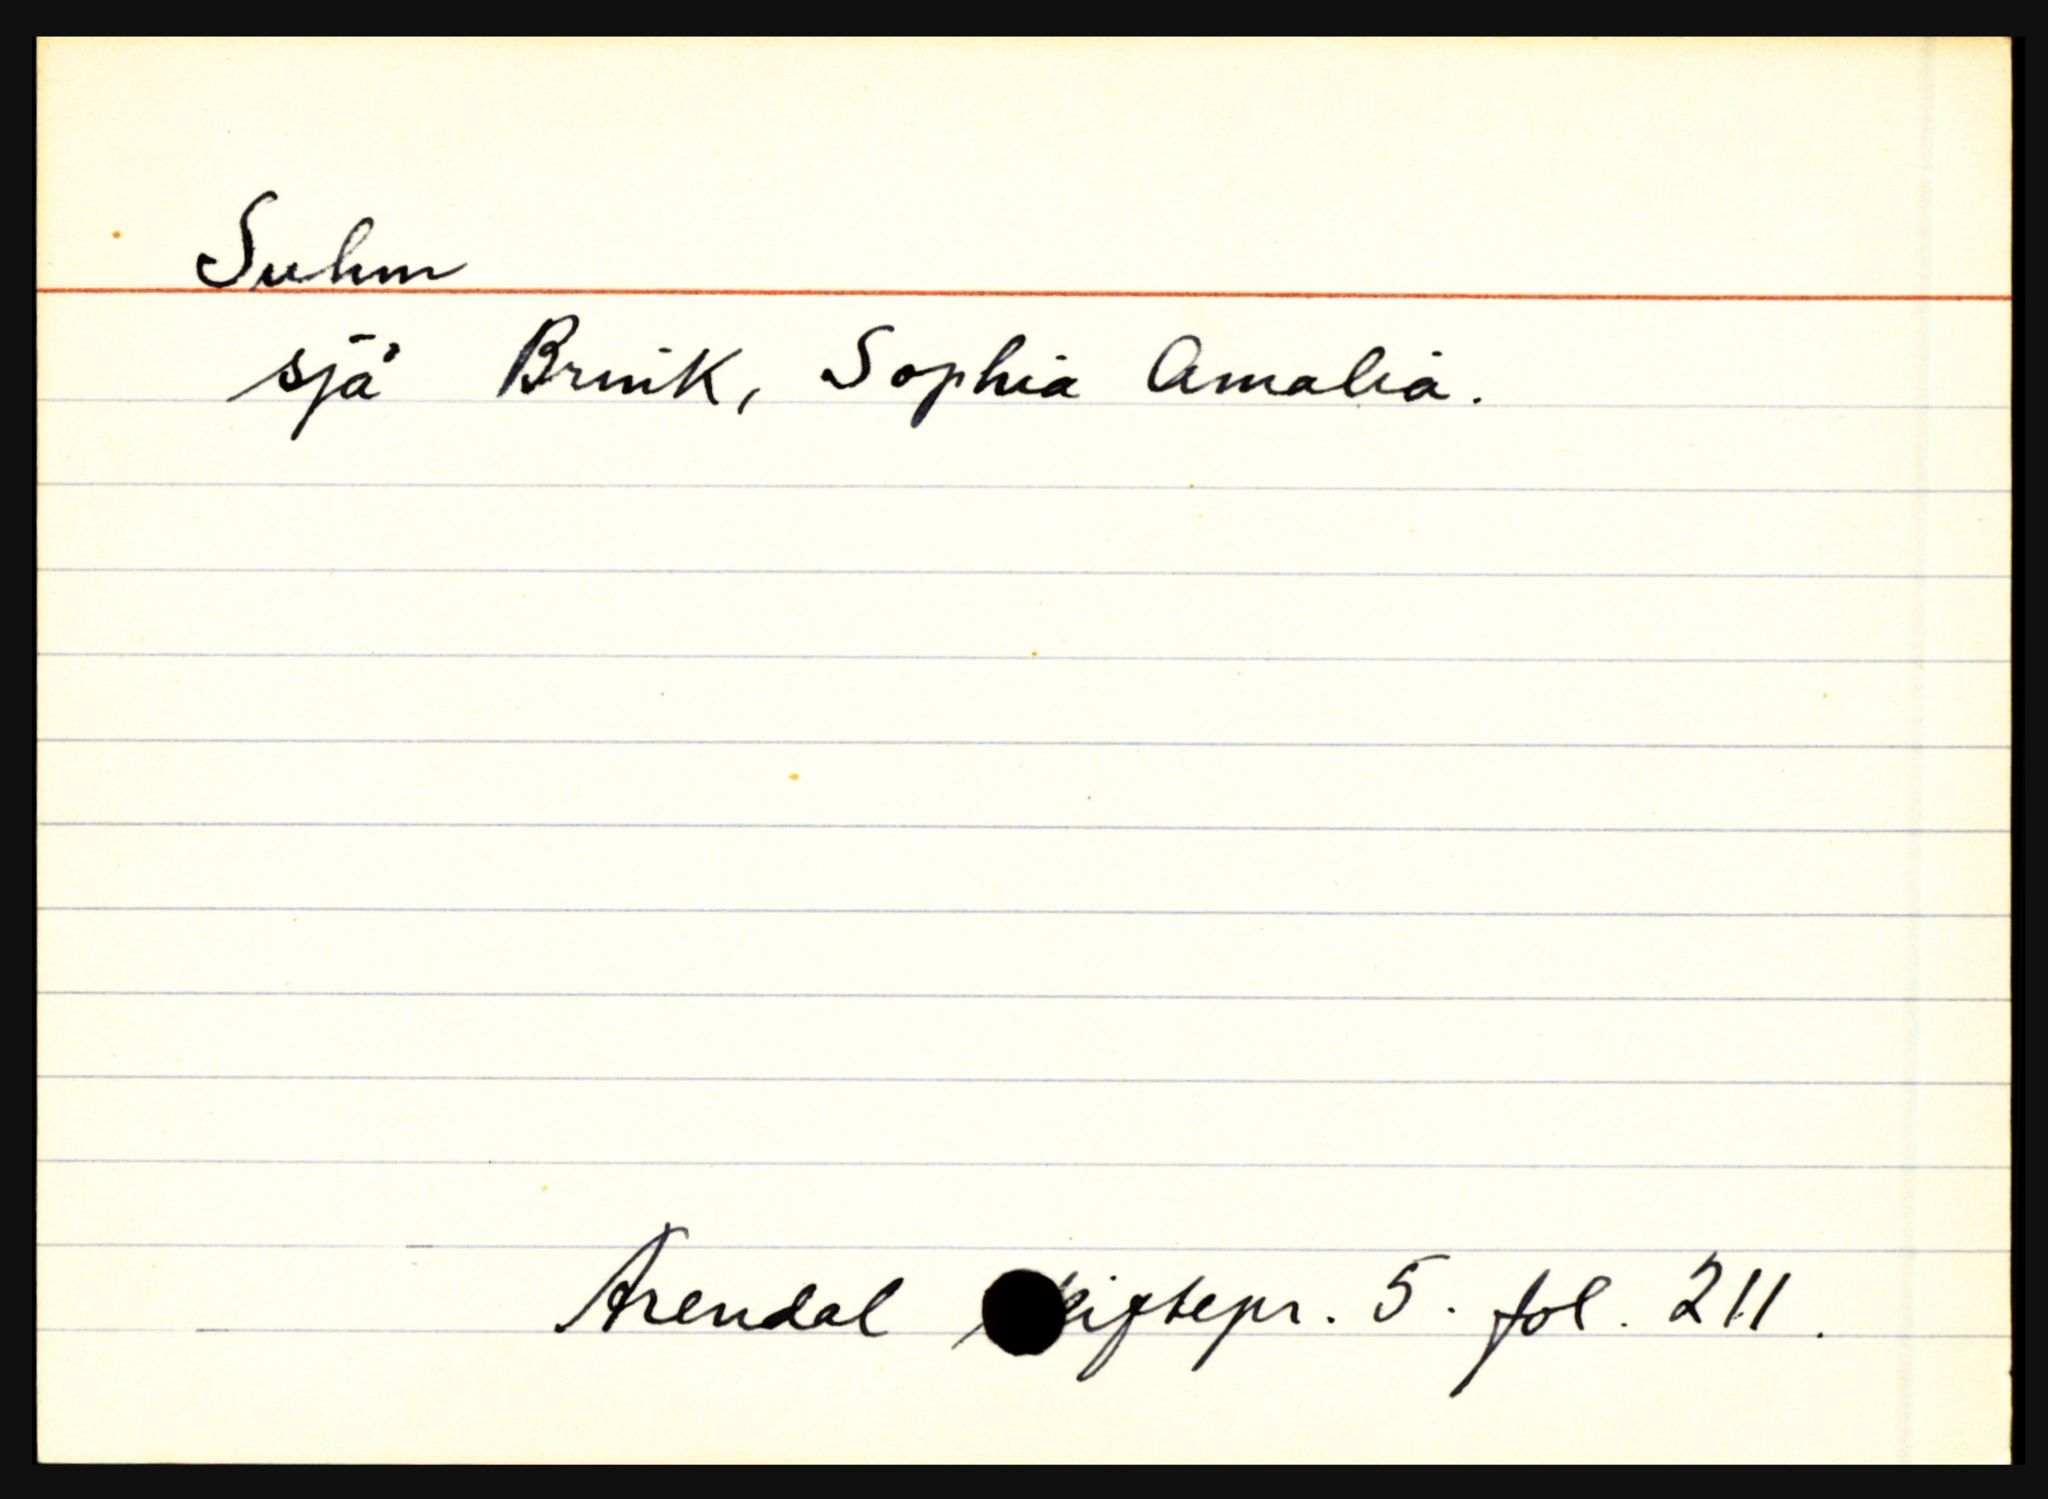 Suhm
sjå Brink, Sophia Amalia.
Arendal skiftepr. 5. fol. 211.